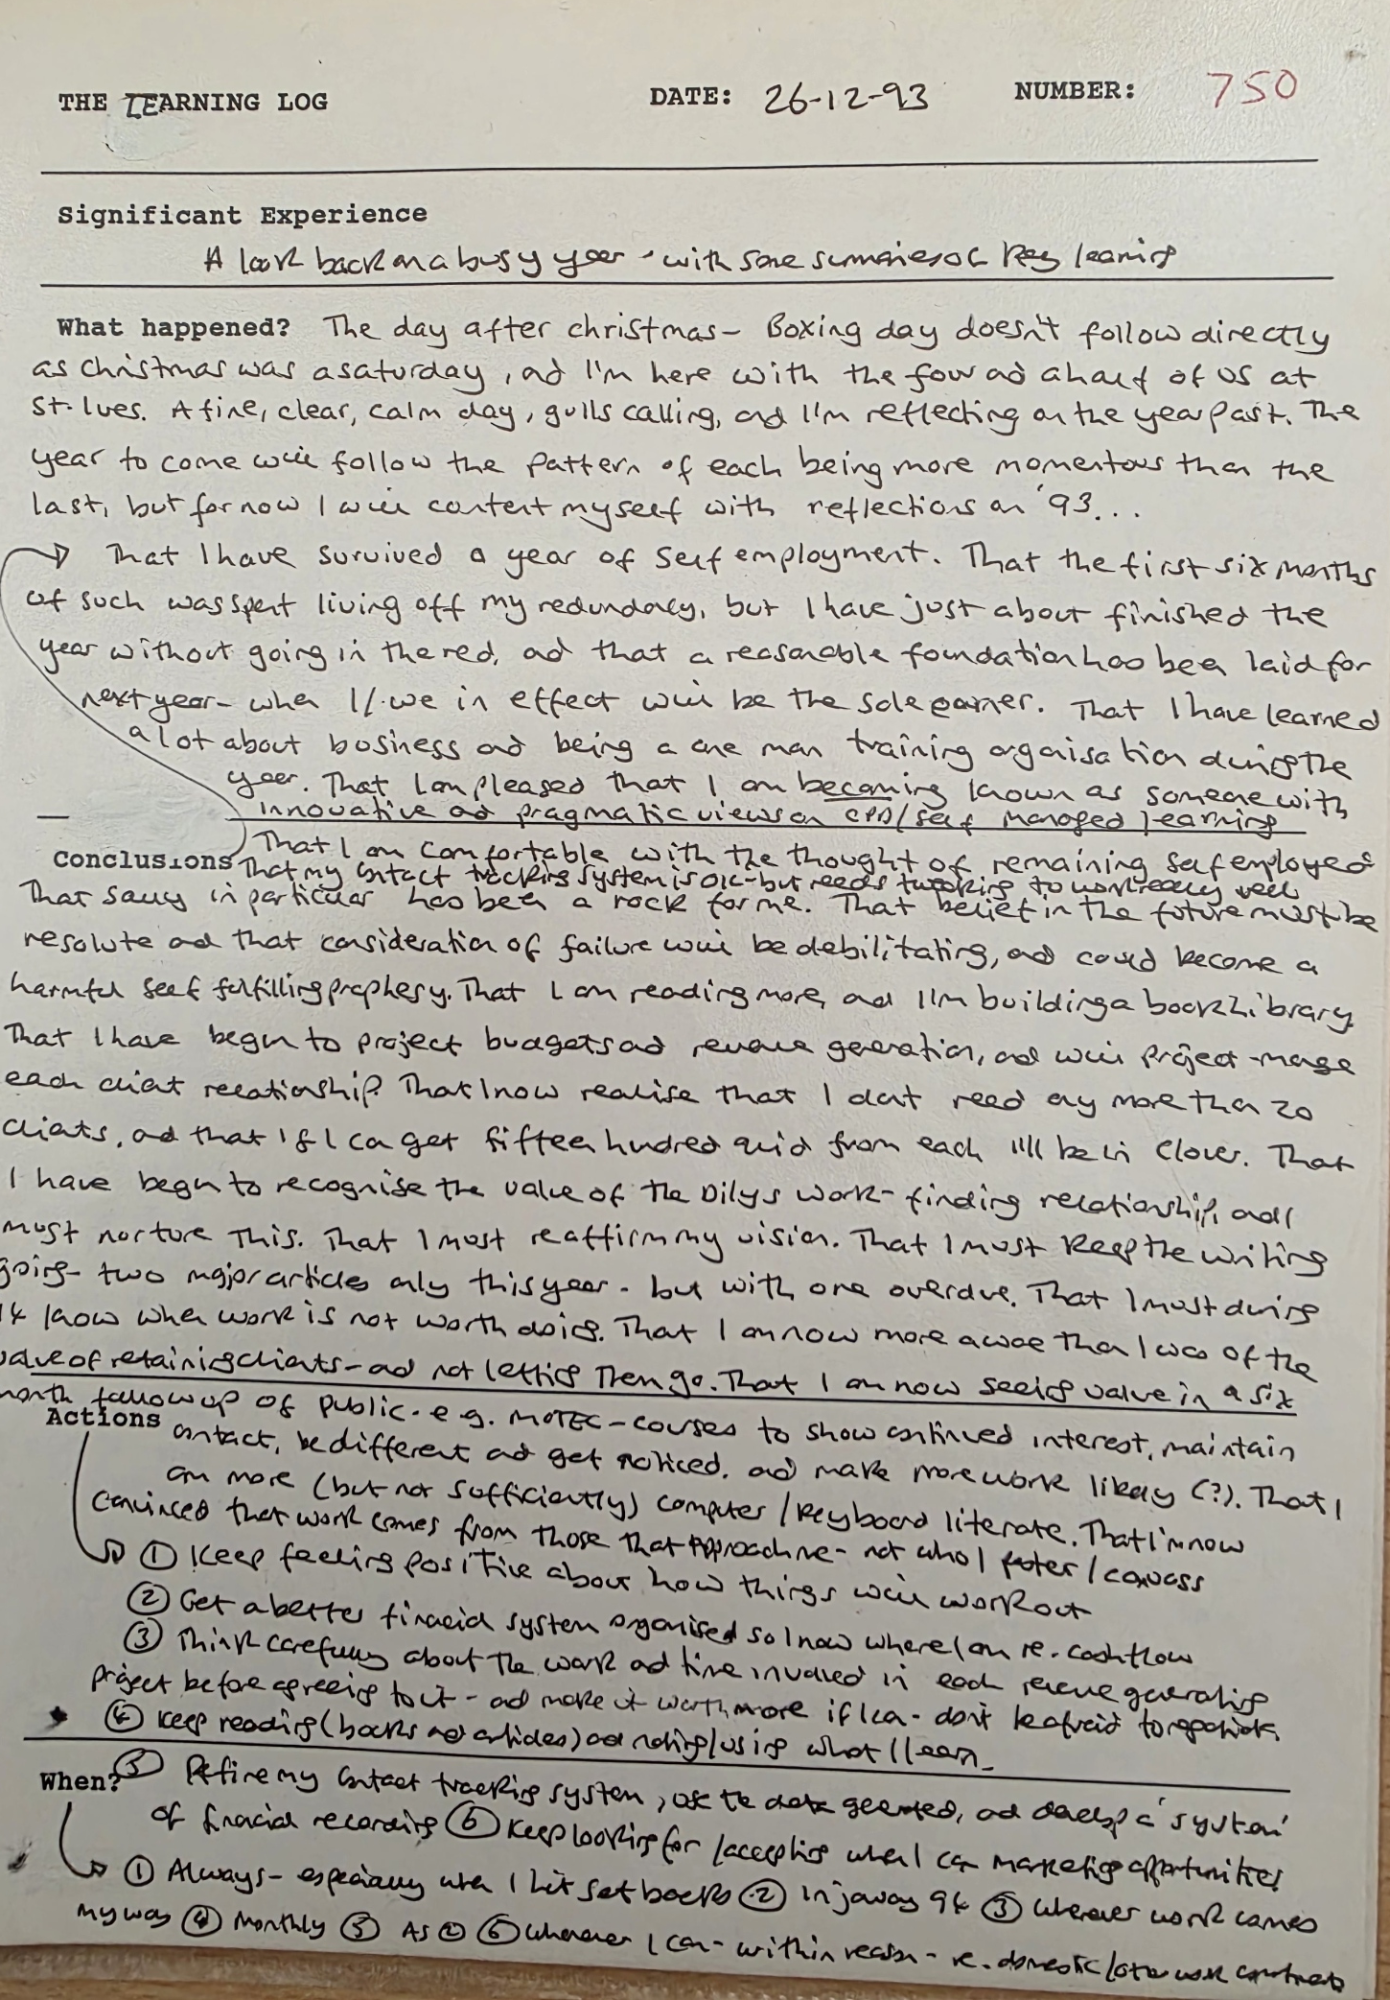 THE LEARNING LOG DATE: 26-12-93 NUMBER: 750
Significant Experience
A look back on a busy year - with some summaries of key learning
What happened? The day after christmas - Boxing day doesn't follow directly
as christmas was a saturday, and I'm here with the four and a half of us at
St. Ives. A fine, clear, calm day, gulls calling, and I'm reflecting on the year past. The
year to come will follow the pattern of each being more momentous than the
last, but for now I will content myself with reflections on '93...
That I have survived a year of self employment. That the first six months
of such was spent living off my redundancy, but I have just about finished the
year without going in the red, and that a reasonable foundation has been laid for
next year - when I/we in effect will be the sole earner. That I have learned
a lot about business and being a one man training organisation during the
year. That I am pleased that I am becoming known as someone with
innovative and pragmatic views on CPD/self managed learning
That I am comfortable with the thought of remaining self employed
Conclusions That my contact tracking system is OK - but needs tweaking to work really well
That Sally in particular has been a rock for me. That belief in the future must be
resolute and that consideration of failure will be debilitating, and could become a
harmful self fulfilling prophesy. That I am reading more, and I'm building a book library.
That I have begun to project budgets and revenue generation, and will project-manage
each client relationship. That I now realise that I don't need any more than 20
clients, and that if I can get fifteen hundred quid from each I'll be in clover. That
I have begun to recognise the value of the Dilys work-finding relationship, and I
must norture this. That I must reaffirm my vision. That I must keep the writing
going - two major articles only this year - but with one overdue. That I must during
94 know when work is not worth doing. That I am now more aware than I was of the
value of retaining clients - and not letting them go. That I am now seeing value in a six
month followup of public - e.g. MOTEC - courses to show continued interest, maintain
Actions contact, be different and get noticed, and make more work likely (?). That I
am more (but not sufficiently) computer/keyboard literate. That I'm now
convinced that work comes from those that approach me - not who I /canvass
① Keep feeling positive about how things will work out
② Get a better financial system organised so I now where I am re. cashflow
③ Think carefully about the work and time involved in each revenue generating
project before agreeing to it - and make it worth more if I can - don't be afraid to
④ Keep reading (books and articles) and noting/using what I learn
When? ⑤ Refine my contact tracking system, use the data generated, and develop a 'system'
of financial recording ⑥ Keep looking for/accepting when I can marketing opportunities
① Always - especially when I hit set backs ② In january 94 ③ Whenever work comes
my way ④ Monthly ⑤ As ② ⑥ Whenever I can - within reason - re. domestic/other work constraints